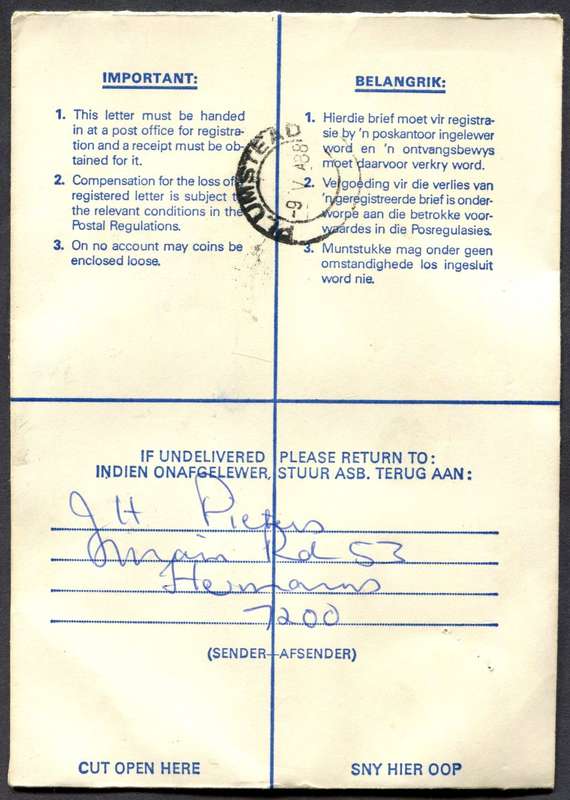 IMPORTANT:
1. This letter must be handed
in at a post office for registra-
tion and a receipt must be ob-
tained for it.
2. Compensation for the loss of
registered letter is subject to
the relevant conditions in the
Postal Regulations.
3. On no account may coins be
enclosed loose.
BELANGRIK:
1. Hierdie brief moet vir registra-
sie by 'n poskantoor ingelewer
word en 'n ontvangsbewys
moet daarvoor verkry word.
2. Vergoeding vir die verlies van
'n geregistreerde brief is onder-
worpe aan die betrokke voor-
waardes in die Posregulasies.
3. Muntstukke mag onder geen
omstandighede los ingesluit
word nie.
PLUMSTEAD
-9 V
IF UNDELIVERED PLEASE RETURN TO:
INDIEN ONAFGELEWER, STUUR ASB. TERUG AAN:
J H Pieters
Main Rd 53
Hermanus
7200
(SENDER–AFSENDER)
CUT OPEN HERE
SNY HIER OOP